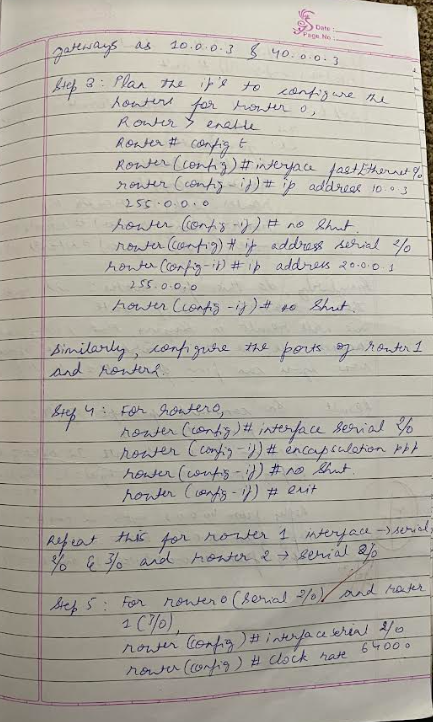 Date :
Page No :
gateways as 10.0.0.3 & 40.0.0.3
Step 3 : Plan the ip's to configure the
routers for router 0,
Router > enable
Router # config t
Router (config) # interface fastEthernet 0/0
router (config-if) # ip address 10.0.3
255.0.0.0
router (config-if) # no shut.
router (config) # ip address serial 2/0
router (config-if) # ip address 20.0.0.1
255.0.0.0
router (config-if) # no shut.
Similarly, configure the ports of router 1
and router2.
Step 4 : For router0,
router (config) # interface serial 2/0
router (config-if) # encapsulation ppp
router (config-if) # no shut.
router (config-if) # exit
Repeat this for router 1 interface → serial,
2/0 & 3/0 and router 2 → serial 2/0
Step 5 : For router 0 (serial 2/0) and router
1 (3/0),
router (config) # interface serial 2/0
router (config) # clock rate 64000